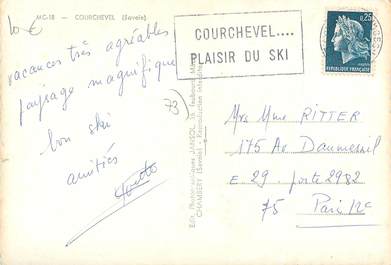 10 €
MC-18 — COURCHEVEL (Savoie)
COURCHEVEL....
PLAISIR DU SKI
0,25
REPUBLIQUE FRANÇAISE
vacances très agréables
paysage magnifique
bon ski
amitiés
73)
CHAMBERY (Savoie) - Reproduction interdite
Mrs Mme RITTER
175 Av Daumesnil
E. 29. porte 2982
75 Paris 12e